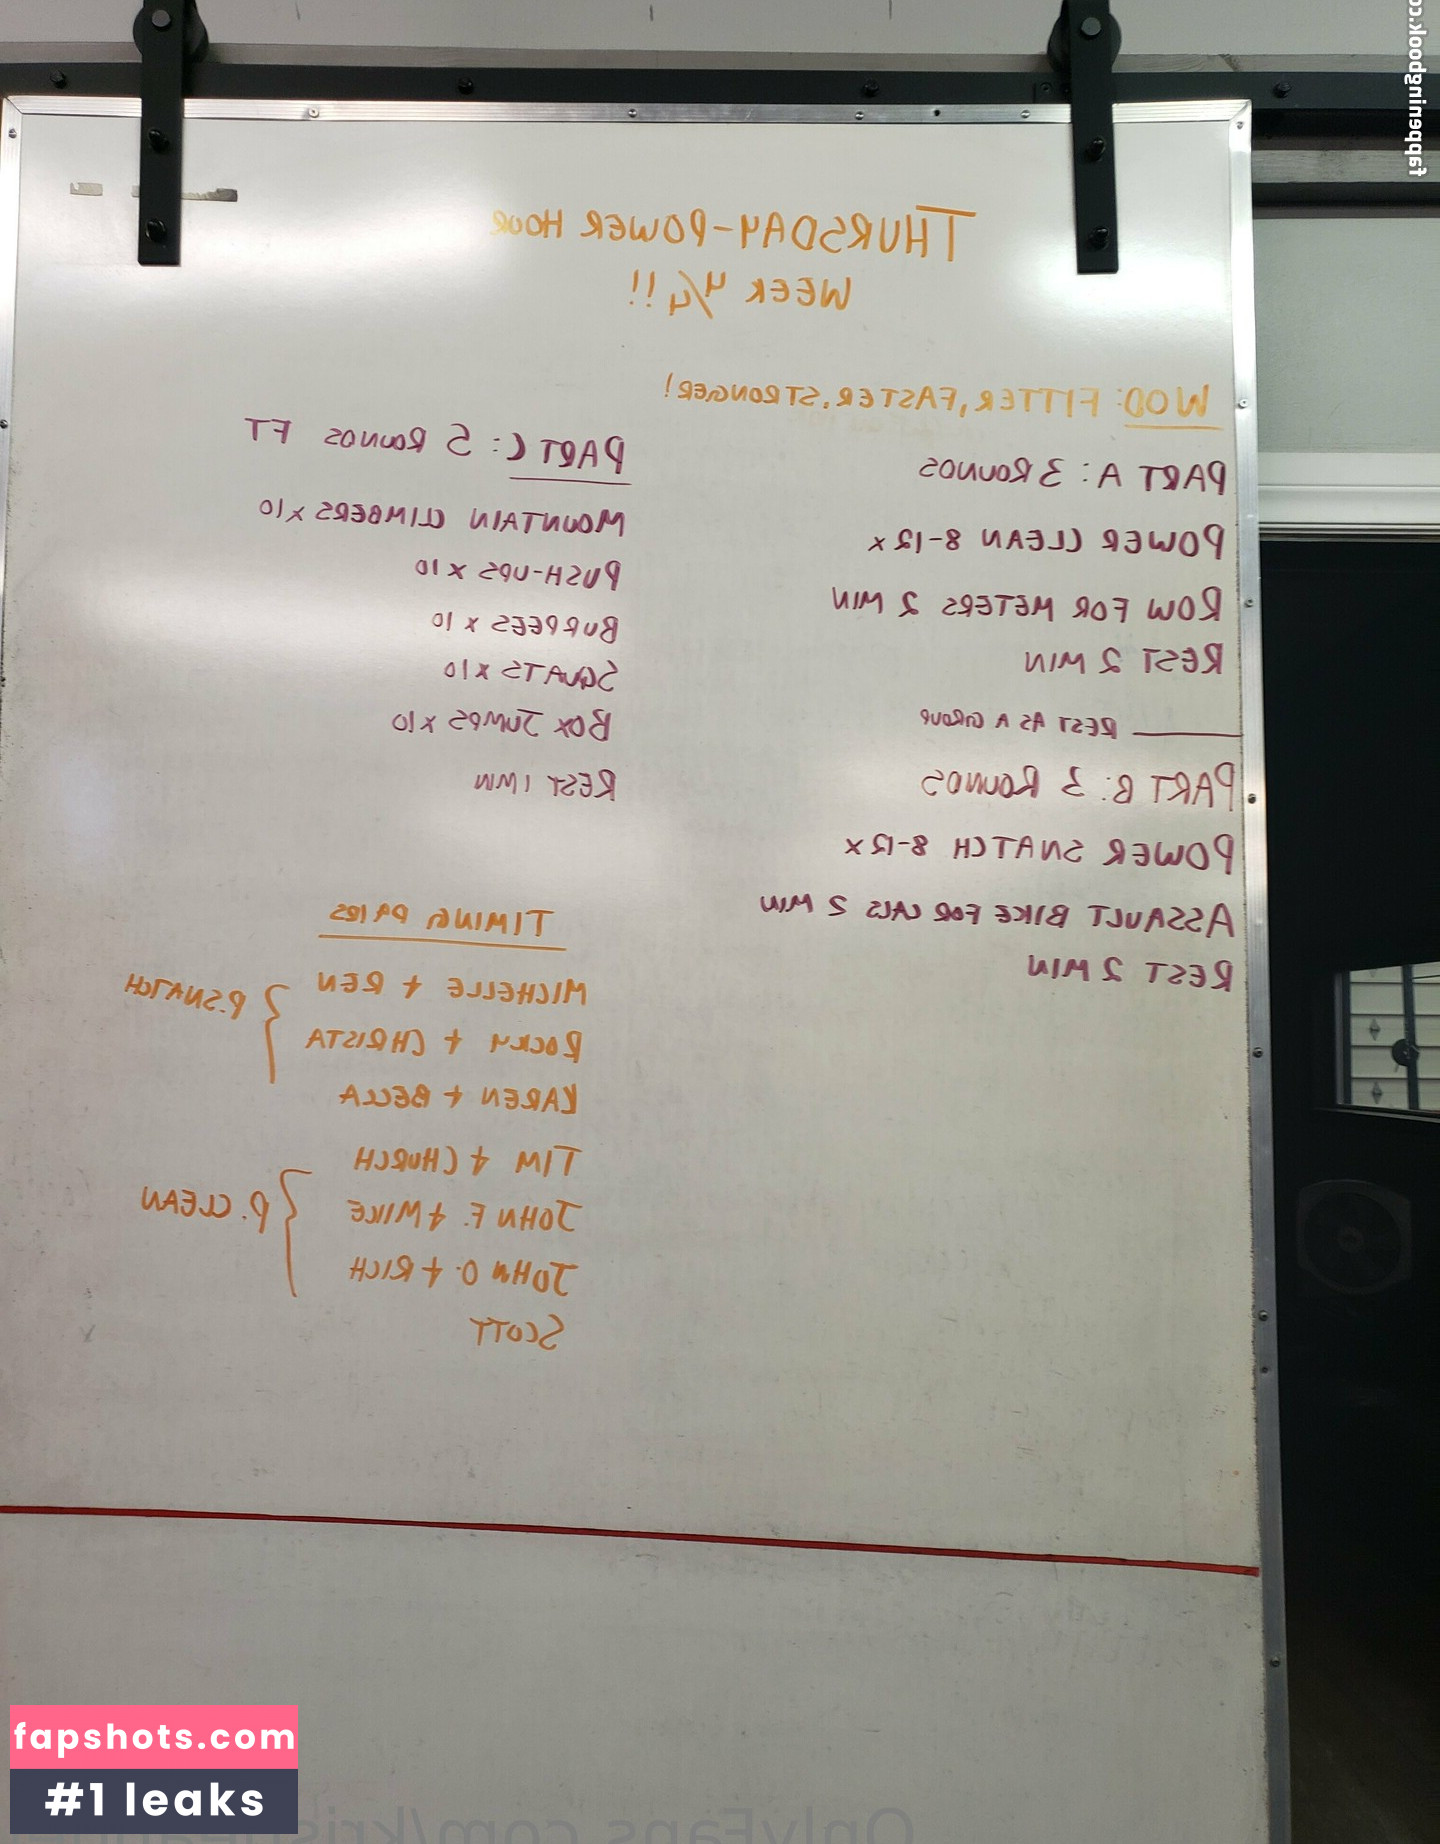 THURSDAY-POWER HOUR
WEEK 4/4!!
WOD: FITTER, FASTER, STRONGER!
PART A: 3 ROUNDS
POWER CLEAN 8-12x
ROW FOR METERS 2 MIN
REST 2 MIN
REST AS A GROUP
PART B: 3 ROUNDS
POWER SNATCH 8-12x
ASSAULT BIKE FOR CALS 2 MIN
REST 2 MIN
PART C: 5 ROUNDS FT
MOUNTAIN CLIMBERS x10
PUSH-UPS x 10
BURPEES x 10
SQUATS x10
BOX JUMPS x10
REST 1 MIN
TIMING PAIRS
MICHELLE + REN
ROCKY + CHRISTA
KAREN + BELLA
P.SNATCH
TIM + CHURCH
JOHN F. + MIKE
JOHN O. + RICH
P. CLEAN
SCOTT
fappeningbook.co
fapshots.com
#1 leaks